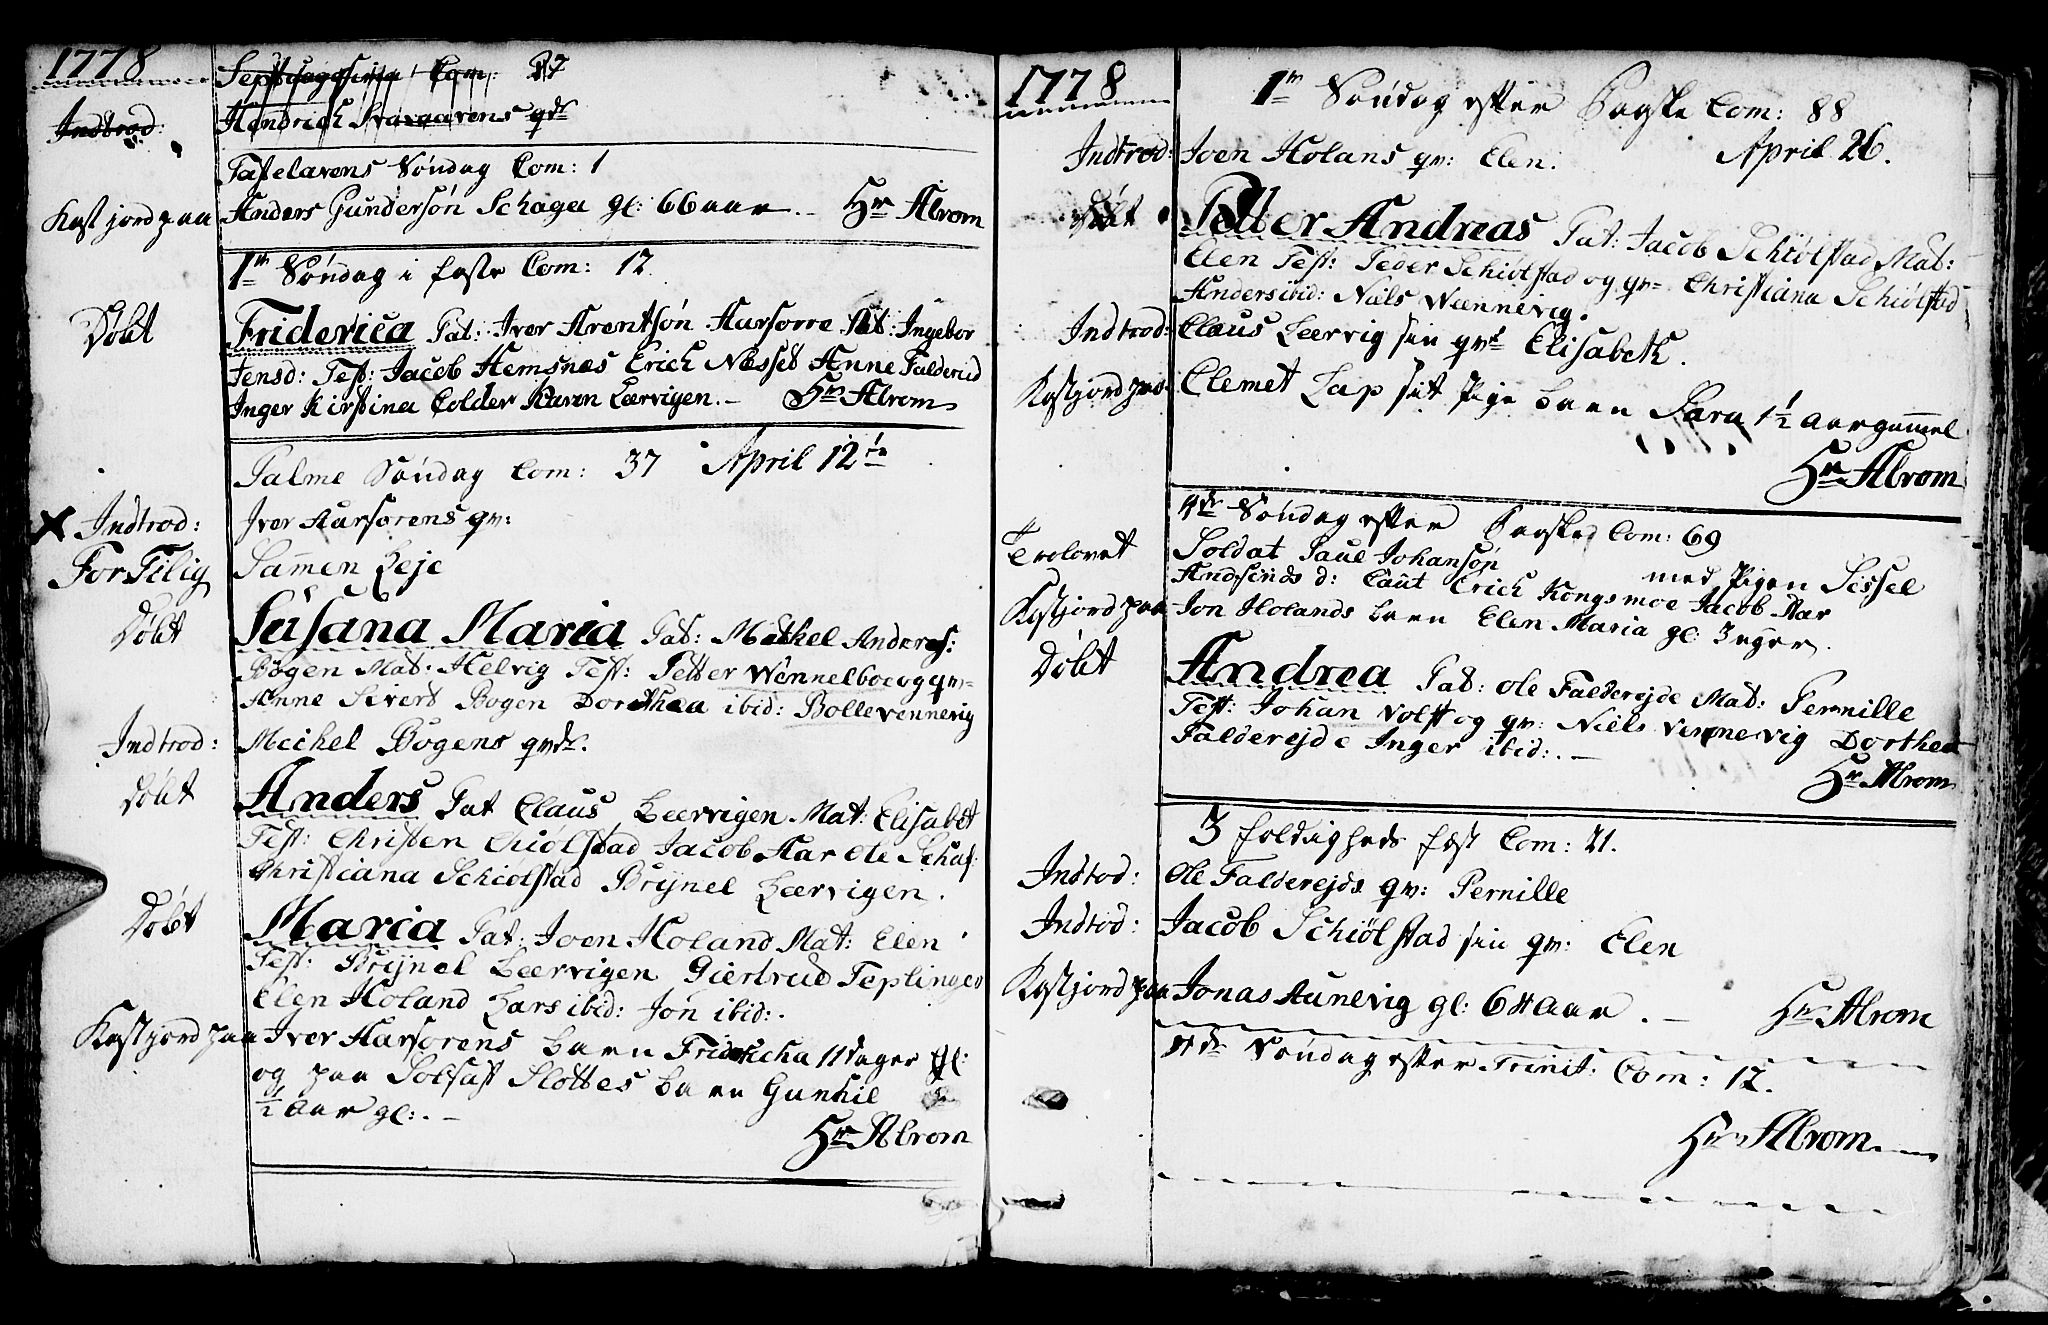 1778
Indtrod:
Hendrich Svavaarens qvdr
Fastelavens Søndag Com: 1
Kast jord paa Anders Gundersøn Schaga gl: 66 aar.- Hr Alrom
1te Søndag i faste Com: 12.
Døbt Friderica Pat: Iver Arentsøn Aarsorre Mat: Ingebor
Jensd: Test: Jacob Hemsnes Erich Nesset Anne Faldereid
Inger Kirstina Colder Karen Leervigen.- Hr Alrom
Palme Søndag Com: 37 April 12te
Indtrod: Iver Aarsorens qv:
For Tilig Sammen Leje
Døbt Susana Maria Pat: Meikel Anders:
Bogen Mat: Helvig Test: Petter Wennelboe og qv=
Anne Sivert Bogen Dorthea ibid: Bolle vennevig
Indtrod: Meikel Bogens qvdr.
Døbt Anders Pat Claus Leervigen Mat: Elisabet
Test: Christen Chiølstad Jacob Aar Ole Schaf:
Christiana Schiolstad Brynel Leervigen.
Døbt Maria Pat: Joen Holand Mat: Elen
Test: Brynel Leervigen Giertrud Teplinger
Elen Holand Lars ibid: Jon ibid:.
Kastjord paa Iver Aarsorens barn Fridericha 11 dager gl:
og paa Solfast Slottes barn Gunhil
1/2 Aar gl:.-
Hr Alrom
1778
1te Søndag efter Paaske Com: 88
April 26.
Indtrod: Joen Holans qv: Elen.
Døbt Petter Andreas Pat: Jacob Schiølstad Mat:
Elen Test: Peder Schiølstad og qv= Christiana Schiølstad
Anders ibid: Niels Wennevig.
Indtrod: Claus Leervig sin qvr Elisabeth.
Kastjord paa Clemet Lap sit Pige barn Sara 1 1/2 aar gammel
Hr Alrom
4de Søndag efter Paaske Com: 69
Trolovet Soldat Paul Johansøn med Pigen Sissel
Andsinds d: Caut Erich Kongsmoe Jacob Aar
Kastjord paa Jon Holands barn Elen Maria gl: 3 uger.
Døbt Andrea Pat: Ole Falderejde Mat: Pernille
Test: Johan Volft og qv: Niels Vennevig Dorthea
Falderejde Inger ibid:.-
Hr Alrom
3 foldigheds fest Com: 21.
Indtod: Ole Falderejds qv: Pernille
Indtod: Jacob Schiølstad sin qv: Elen
Kastjord paa Jonas Aunevig gl: 64 Aar.- Hr Alrom
4de Søndag efter Trinit: Com: 12.
Hr Alrom